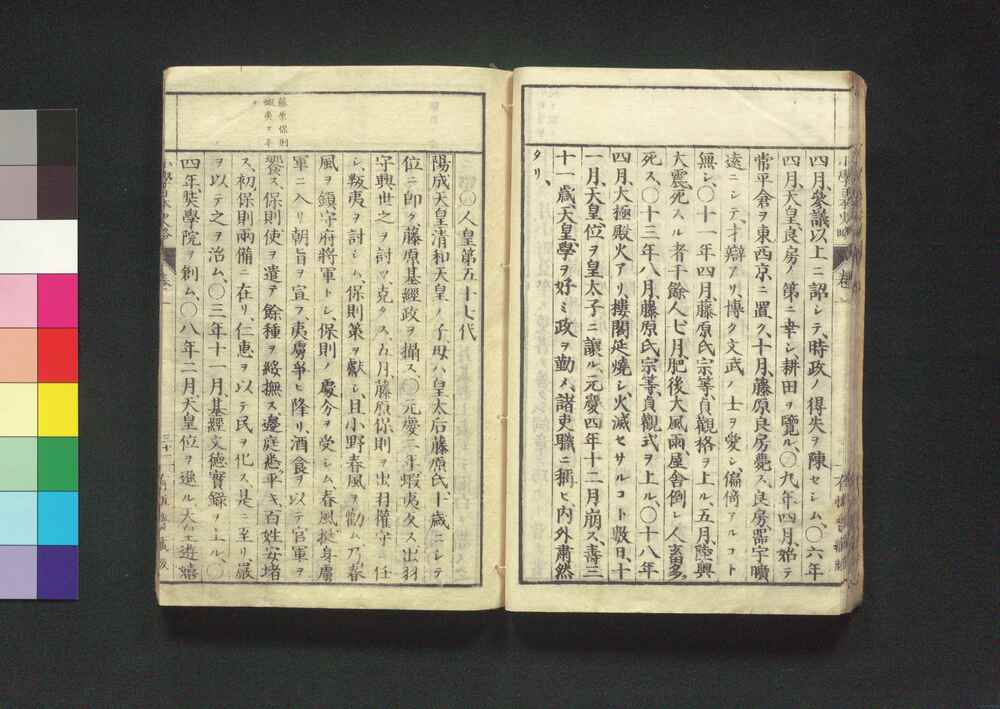 四月、參議以上ニ詔シテ、時政ノ得失ヲ陳セシム、〇六年
四月、天皇、良房ノ第ニ幸シ、耕田ヲ覽ル、〇九年四月、始テ
常平倉ヲ東西京ニ置ク、十月、藤原良房薨ス、良房器宇曠
遠ニシテ、才辯アリ、博ク文武ノ士ヲ愛シ、偏倚アルコト
無シ、〇十一年四月、藤原氏宗等、貞觀格ヲ上ル、五月、陸奥
大震、死スル者千餘人、七月、肥後大風雨、屋舍倒レ、人畜多ク
死ス、〇十三年八月、藤原氏宗等、貞觀式ヲ上ル、〇十八年
四月、大極殿火アリ、樓閣延燒シ、火滅セサルコト數日、十
一月、天皇位ヲ皇太子ニ讓ル、元慶四年十二月崩ス、壽三
十一歲、天皇、學ヲ好ミ、政ヲ勤メ、諸吏職ニ稱ヒ、內外肅然
タリ、
〇人皇第五十七代
陽成天皇、清和天皇ノ子、母ハ皇太后藤原氏、十歲ニシテ
位ニ卽ク、藤原基經政ヲ攝ス、〇元慶二年、蝦夷久ス、出羽
守興世之ヲ討テ克タス、五月、藤原保則ヲ出羽權守ニ任
シ、叛夷ヲ討シム、保則策ヲ獻シ、且小野春風ヲ勸ム、乃春
風ヲ鎮守府將軍トシ、保則ノ處分ヲ受シム、春風挺身虜
軍ニ入リ、朝旨ヲ宣フ、夷虜爭ヒ降リ、酒食ヲ以テ官軍ヲ
饗ス、保則使ヲ遣テ餘種ヲ綏撫ス、邊庭悉ク平キ、百姓安堵
ス、初、保則兩備ニ在リ、仁惠ヲ以テ民ヲ化ス、是ニ至リ、嚴
ヲ以テ之ヲ治ム、〇三年十一月、基經文德實錄ヲ上ル、〇
四年、奘學院ヲ創ム、〇八年二月、天皇位ヲ遜ル、天皇遊嬉
藤原保則
蝦夷ヲ平
ク